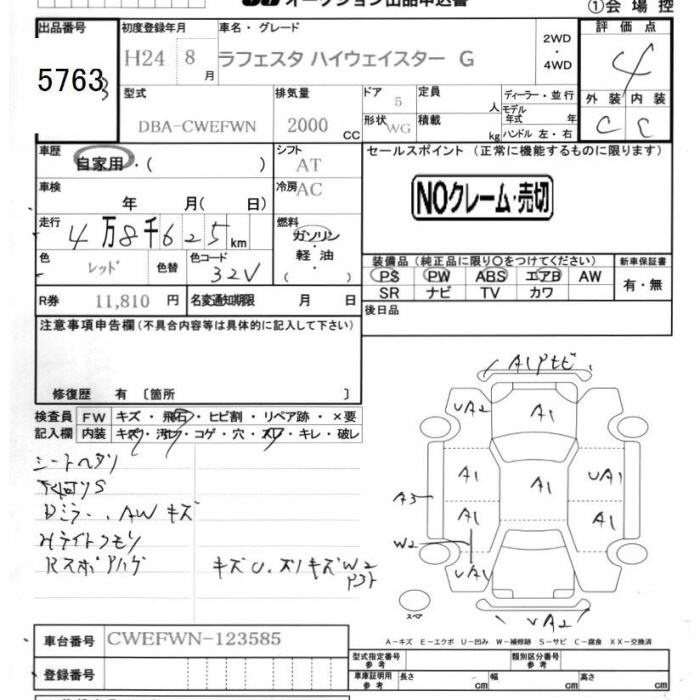 オークション出品申込書
①会場控
出品番号 初度登録年月 車名・グレード 評価点
5763 H24 8月 ラフェスタ ハイウェイスター G 2WD・4WD 4
3
型式 排気量 ドア 定員 ディーラー・並行 外装 内装
DBA-CWEFWN 2000CC 5 人 モデル年式 年 C C
形状 WG 積載 kg ハンドル 左・右
車歴 シフト セールスポイント (正常に機能するものに限ります)
自家用・( ) AT
車検 冷房 AC NOクレーム・売切
年 月( 日)
走行 燃料
4万8千625km ガソリン・軽油( )
色 色替 色コード 装備品(純正品に限り〇をつけてください) 新車保証書
レッド 32V PS PW ABS エアB AW 有・無
SR ナビ TV カワ
R券 11,810円 名変通知期限 月 日 後日品
注意事項申告欄(不具合内容等は具体的に記入して下さい)
修復歴 有 〔箇所 〕
検査員 FW キズ・飛石・ヒビ割・リペア跡・×要
記入欄 内装 キズ・汚レ・コゲ・穴・スレ・キレ・破レ
シートヘタリ
下回りS
Dミラー、AWキズ
Hライトクモリ
キズU、スリキズW2
A1
UA2 A1
A1 A1 UA1
A3 A1 A1
W2
UA1
UA2
スペア
A-キズ E-エクボ U-凹み W-補修跡 S-サビ C-腐食 XX-交換済
車台番号 CWEFWN-123585
登録番号
型式指定番号 参考 類別区分番号 参考
車庫証明用 参考 長さ cm 幅 cm 高さ cm